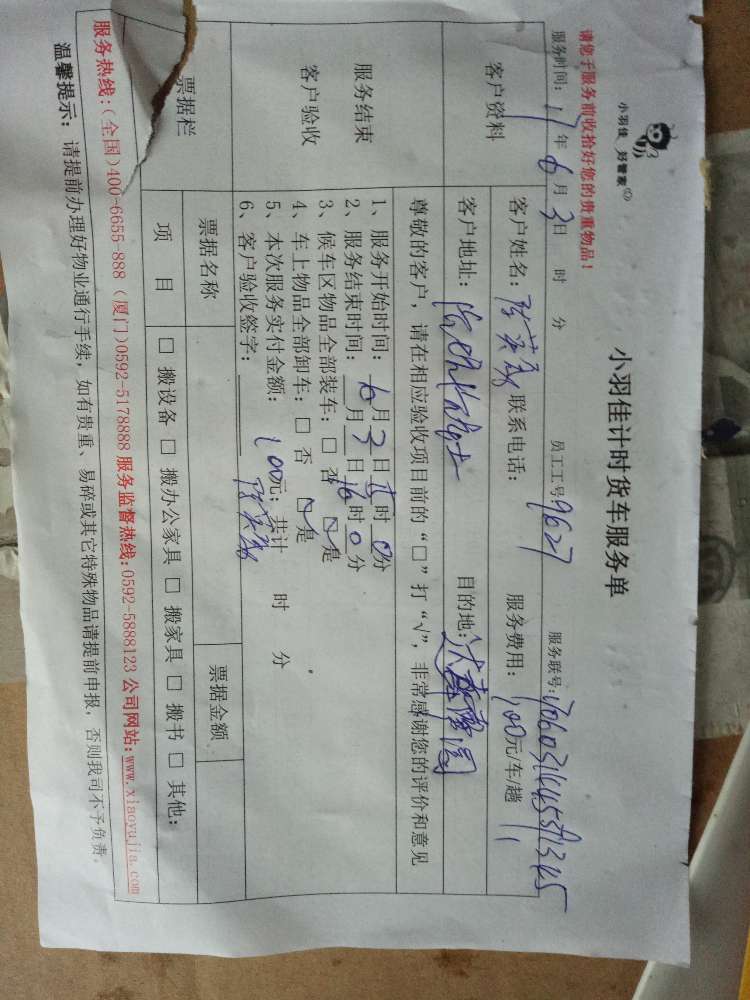 小羽佳 好管家
小羽佳计时货车服务单
请您于服务前收拾好您的贵重物品！
服务时间：17年6月3日 时 分 员工工号9627 服务联号：
客户资料
客户姓名： 联系电话： 服务费用：100元/车/趟
客户地址： 目的地：
服务结束
客户验收
尊敬的客户，请在相应验收项目前的“□”打“√”，非常感谢您的评价和意见
1、服务开始时间：6月3日15时0分
2、服务结束时间：月3日16时0分
3、候车区物品全部装车：□ 否 ☑ 是
4、车上物品全部卸车：□ 否 ☑ 是
5、本次服务实付金额：100元；共计 时 分
6、客户验收签字：
票据栏
票据名称 票据金额
项目 □ 搬设备 □ 搬办公家具 □ 搬家具 □ 搬书 □ 其他：
服务热线：(全国)400-6655-888（厦门)0592-5178888 服务监督热线：0592-5888123 公司网站：www.xiaoyujia.com
温馨提示：请提前办理好物业通行手续，如有贵重、易碎或其它特殊物品请提前申报，否则我司不予负责。